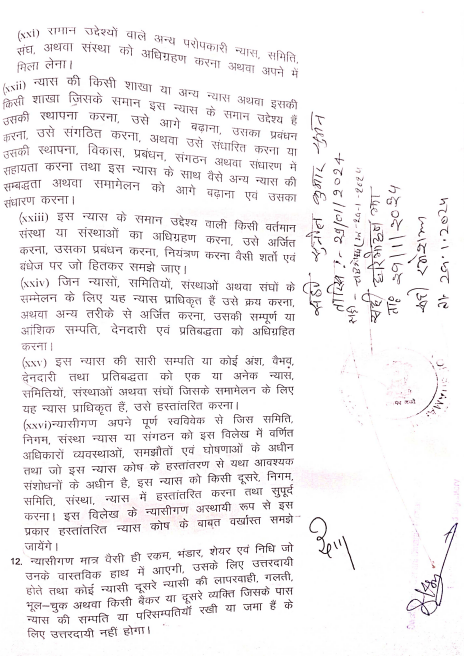 (xxi) समान उद्देश्यों वाले अन्य परोपकारी न्यास, समिति,
संघ, अथवा संस्था को अधिग्रहण करना अथवा अपने में
मिला लेना।
(xxii) न्यास की किसी शाखा या अन्य न्यास अथवा इसकी
किसी शाखा जिसके समान इस न्यास के समान उद्देश्य हैं
उसकी स्थापना करना, उसे आगे बढ़ाना, उसका प्रबंधन
करना, उसे संगठित करना, अथवा उसे संधारित करना या
उसकी स्थापना, विकास, प्रबंधन, संगठन अथवा संधारण में
सहायता करना तथा इस न्यास के साथ वैसे अन्य न्यास की
सम्बद्धता अथवा समागेलन को आगे बढ़ाना एवं उसका
संधारण करना।
(xxiii) इस न्यास के समान उद्देश्य वाली किसी वर्तमान
संस्था या संस्थाओं का अधिग्रहण करना, उसे अर्जित
करना, उसका प्रबंधन करना, नियंत्रण करना वैसी शर्तो एवं
बंधेज पर जो हितकर समझे जाए।
(xxiv) जिन न्यासों, समितियों, संस्थाओं अथवा संघों के
सम्मेलन के लिए यह न्यास प्राधिकृत हैं उसे क्रय करना,
अथवा अन्य तरीके से अर्जित करना, उसकी सम्पूर्ण या
आंशिक सम्पति, देनदारी एवं प्रतिबद्धता को अधिग्रहित
करना।
(xxv) इस न्यास की सारी सम्पति या कोई अंश, वैभव,
देनदारी तथा प्रतिबद्धता को एक या अनेक न्यास,
समितियों, संस्थाओं अथवा संघों जिसके समामेलन के लिए
यह न्यास प्राधिकृत हैं, उसे हस्तांतरित करना।
(xxvi)न्यासीगण अपने पूर्ण स्वविवेक से जिस समिति,
निगम, संस्था न्यास या संगठन को इस विलेख में वर्णित
अधिकारों व्यवस्थाओं, समझौतों एवं घोषणाओं के अधीन
तथा जो इस न्यास कोष के हस्तांतरण से यथा आवश्यक
संशोधनों के अधीन है, इस न्यास को किसी दूसरे, निगम,
समिति, संस्था, न्यास में हस्तांतरित करना तथा सुपूर्द
करना। इस विलेख के न्यासीगण अस्थायी रूप से इस
प्रकार हस्तांतरित न्यास कोष के बाबत वर्खास्त समझे
जायेंगे।
12. न्यासीगण मात्र वैसी ही रकम, भंडार, शेयर एवं निधि जो
उनके वास्तविक हाथ में आएगी, उसके लिए उत्तरदायी
होते तथा कोई न्यासी दूसरे न्यासी की लापरवाही, गलती,
भूल-चुक अथवा किसी बैंकर या दूसरे व्यक्ति जिसके पास
न्यास की सम्पति या परिसम्पत्तियाँ रखी या जमा हैं के
लिए उत्तरदायी नहीं होगा।
सही सुनील कुमार
तारिख :- 29/01/2024
सही -
सही हरिमोहन झा
ता० 29/1/2024
सही
ता 29.1.2024